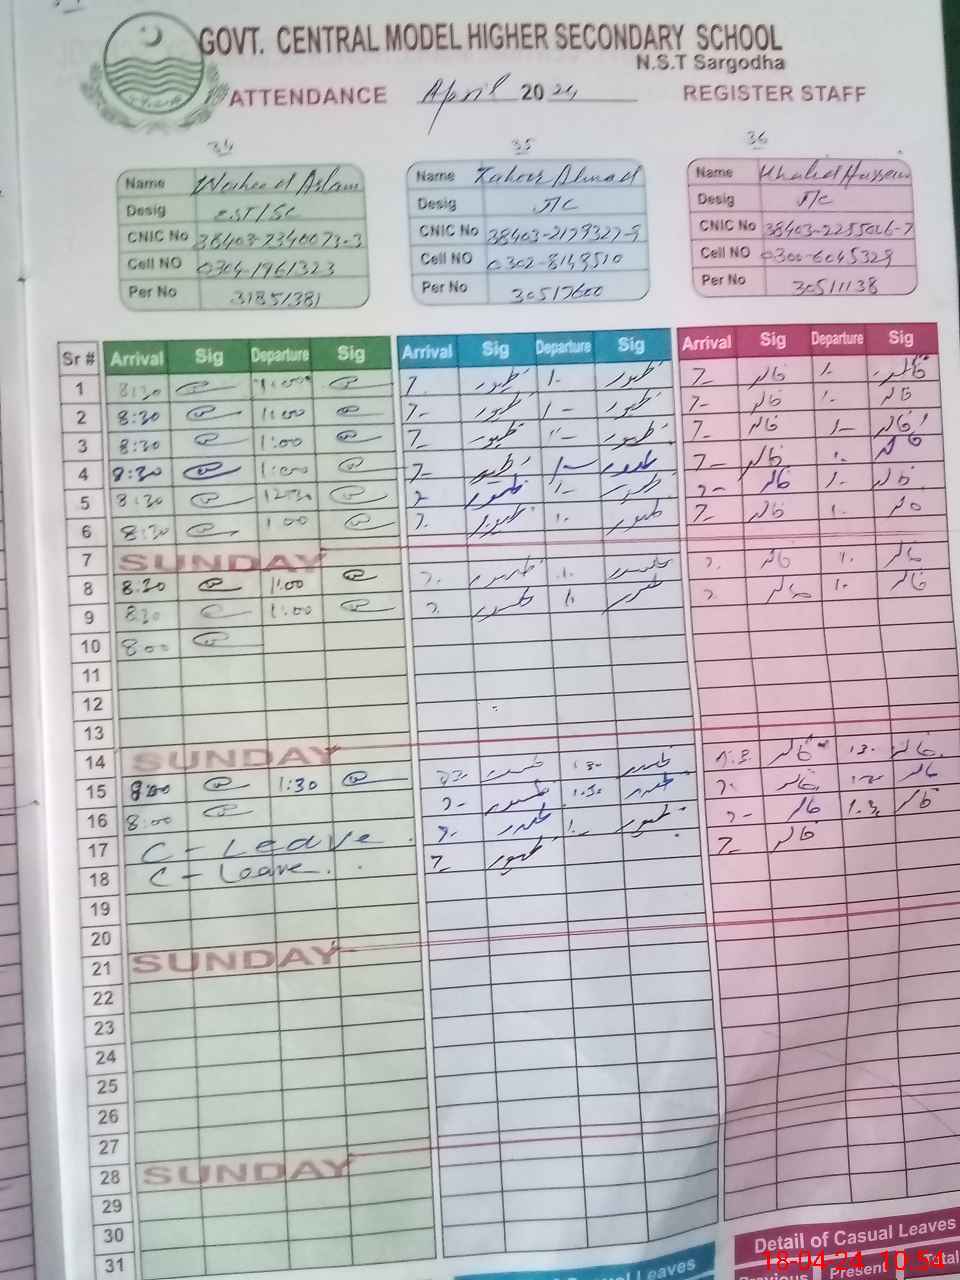 GOVT. CENTRAL MODEL HIGHER SECONDARY SCHOOL
N.S.T Sargodha
ATTENDANCE April 2024 REGISTER STAFF
34 35 36
Name Waheed Aslam Name Zahoor Ahmad Name Khalid Hussain
Desig EST/SC Desig J/C Desig J/C
CNIC No 38403-7340073-3 CNIC No 38403-2179327-9 CNIC No 38403-2255026-7
Cell NO 0304-1961323 Cell NO 0302-8149510 Cell NO 0300-6045329
Per No 31851381 Per No 30517600 Per No 30511138
Sr # Arrival Sig Departure Sig Arrival Sig Departure Sig Arrival Sig Departure Sig
1 8:30 1:00 7- ظہور 1- ظہور 7- خالد 1- خالد
2 8:30 1:00 7- ظہور 1- ظہور 7- خالد 1- خالد
3 8:30 1:00 7- ظہور 1- ظہور 7- خالد 1- خالد
4 8:30 1:00 7- ظہور 1- ظہور 7- خالد 1- خالد
5 8:30 12:30 ظہور 1- ظہور خالد 1- خالد
6 8:30 1:00 7- ظہور 1- ظہور 7- خالد 1- خالد
7 SUNDAY
8 8:30 1:00 ظہور 1- ظہور خالد 1- خالد
9 8:30 1:00 ظہور 1- ظہور خالد 1- خالد
10 8:00
11
12
13
14 SUNDAY
15 8:00 1:30 ظہور 1:30 ظہور خالد 1:30 خالد
16 8:00 ظہور 1:30 ظہور خالد خالد
17 C-Leave ظہور 1- ظہور خالد 1:30 خالد
18 C-Leave 7- ظہور 7- خالد
19
20
21 SUNDAY
22
23
24
25
26
27
28 SUNDAY
29
30
31
Detail of Casual Leaves
Leaves Previous Present Total
18-04-24 10:54